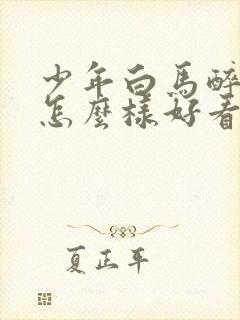 少年白馬醉
怎麼樣好看
夏正平